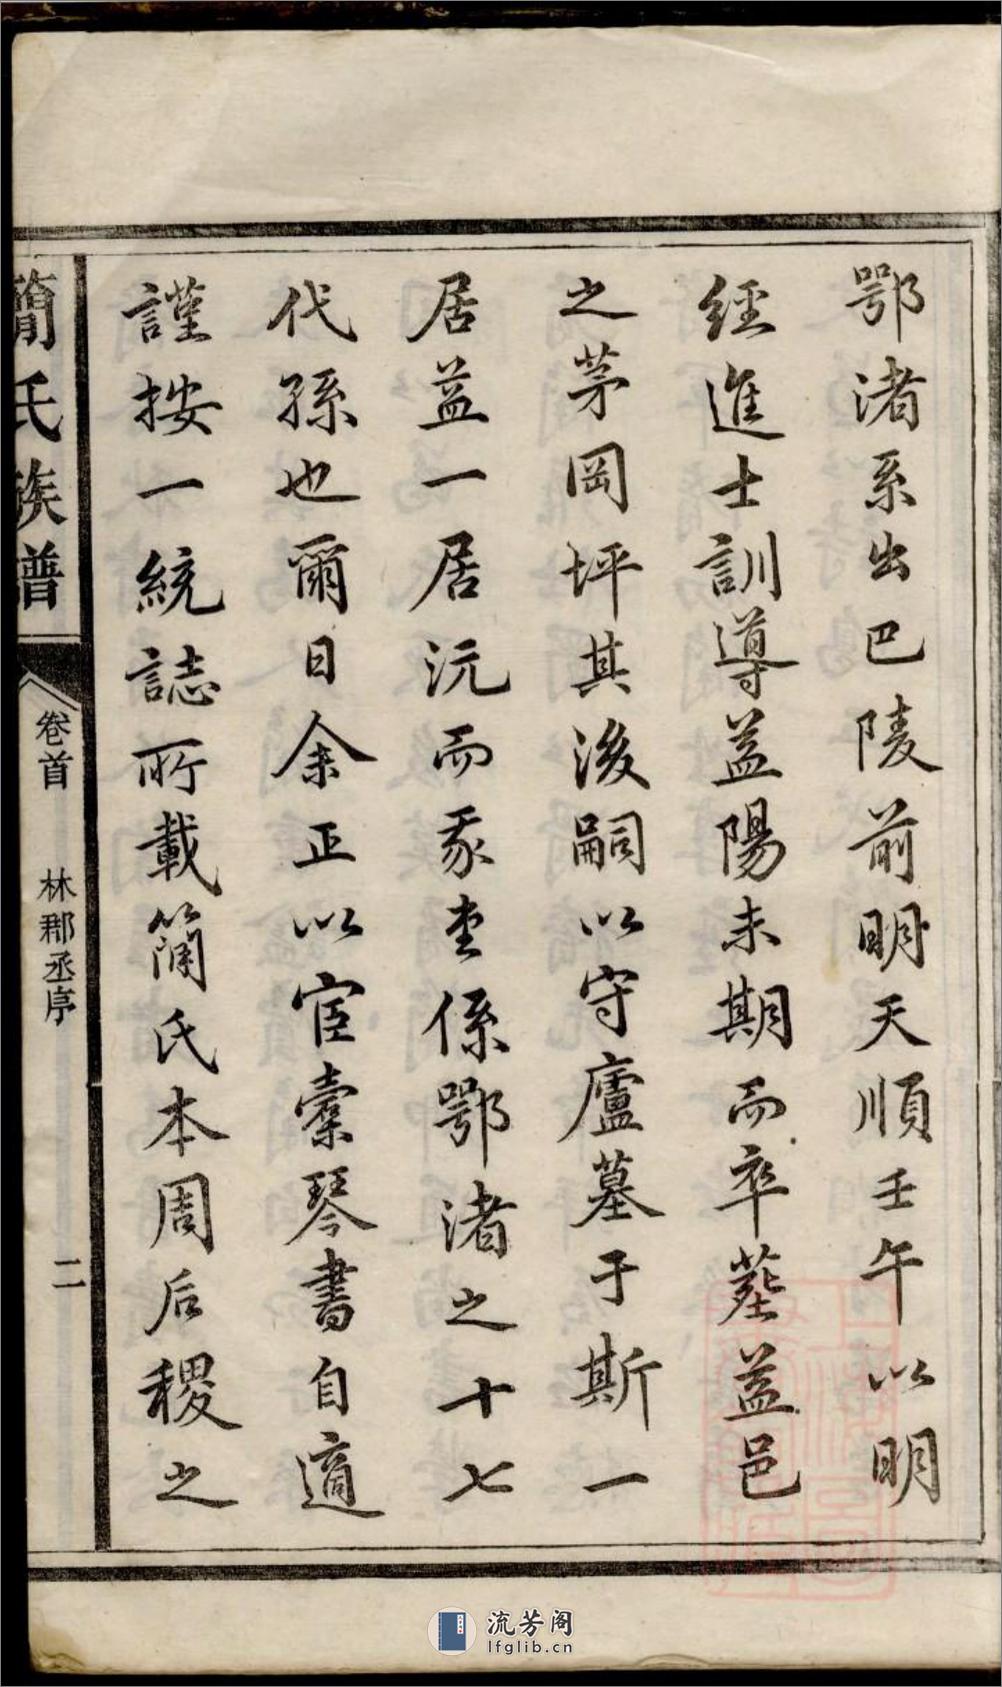 鄂渚系出巴陵前明天順壬午以明
經進士訓導益陽未期而卒塟益邑
之茅岡坪其後嗣以守廬墓于斯一
居益一居沅而彖壺係鄂渚之十七
代孫也爾日余正以宦槖琴書自適
謹按一統誌所載簡氏本周后稷之
簡氏族譜
卷首
林郡丞序
二
流芳阁
lfglib.cn